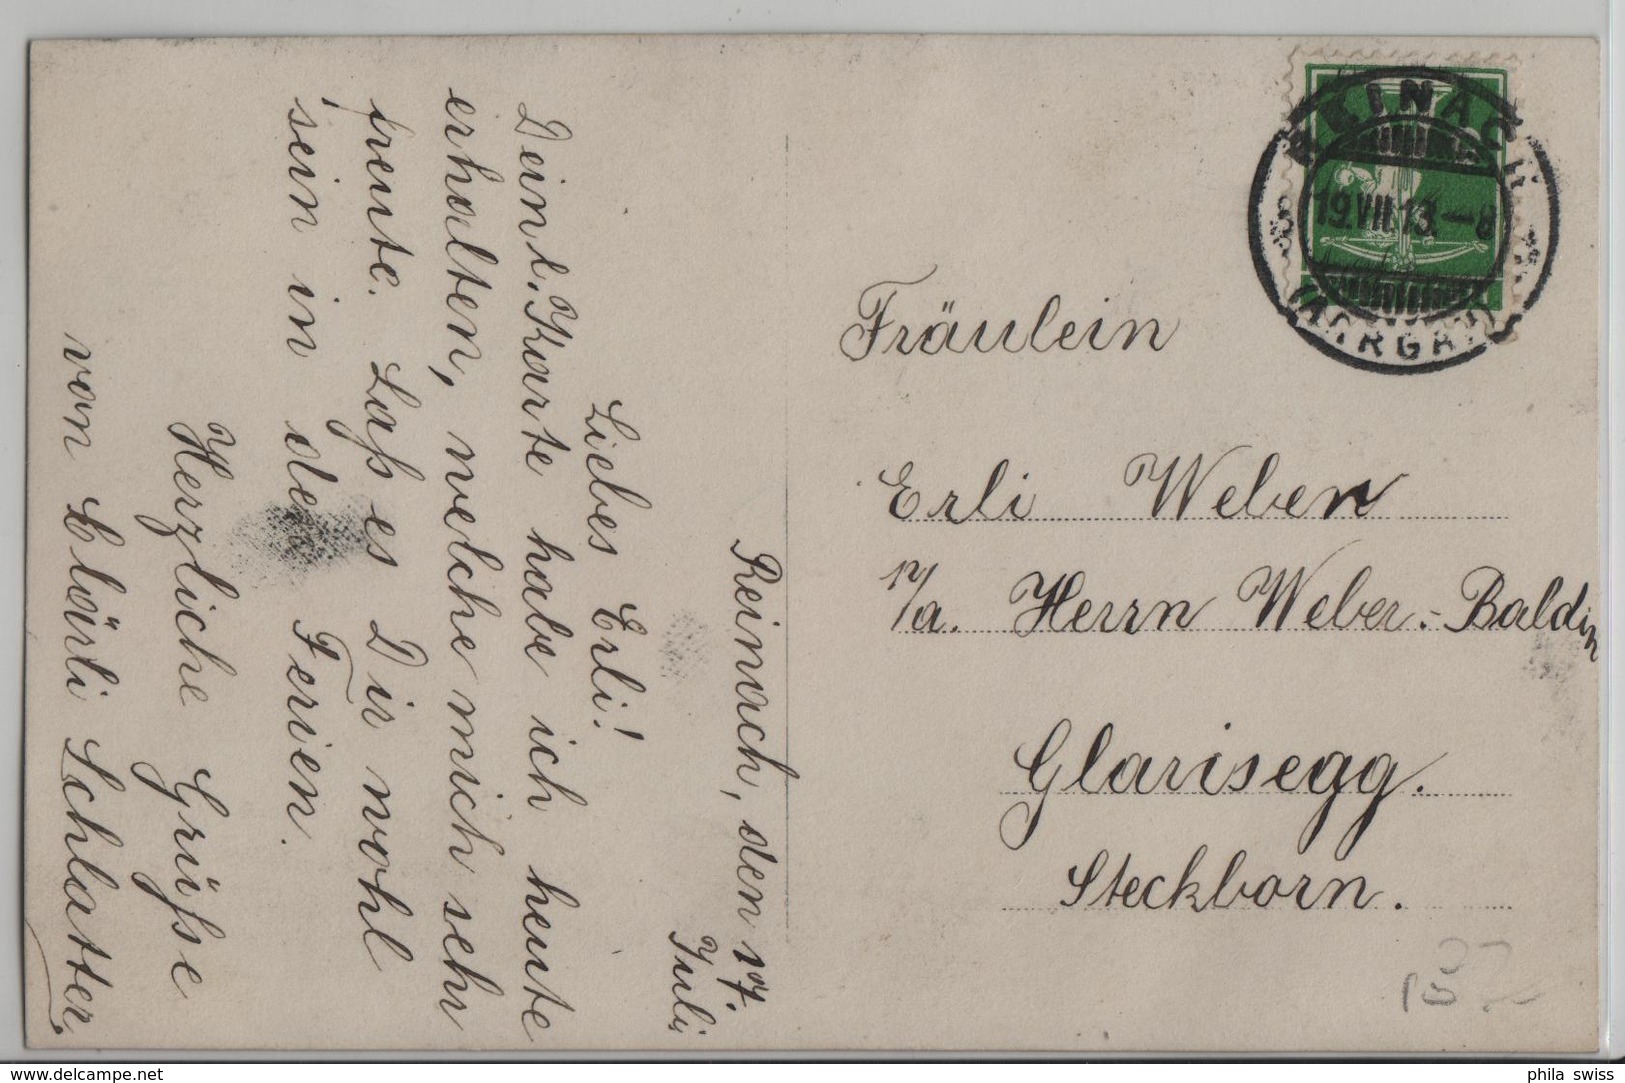 Reinach, den 17.
Juli
Liebes Erli!
Dein l. Karte habe ich heute
erhalten, welche mich sehr
freute. Laß es Dir wohl
sein in den Ferien.
Herzliche Grüsse
von Clärli Schlatter.
REINACH
19.VII.13.-8
(AARGAU)
Fräulein
Erli Weber
p/a. Herrn Weber.-Baldin
Glarisegg.
Steckborn.
www.delcampe.net
phila_swiss